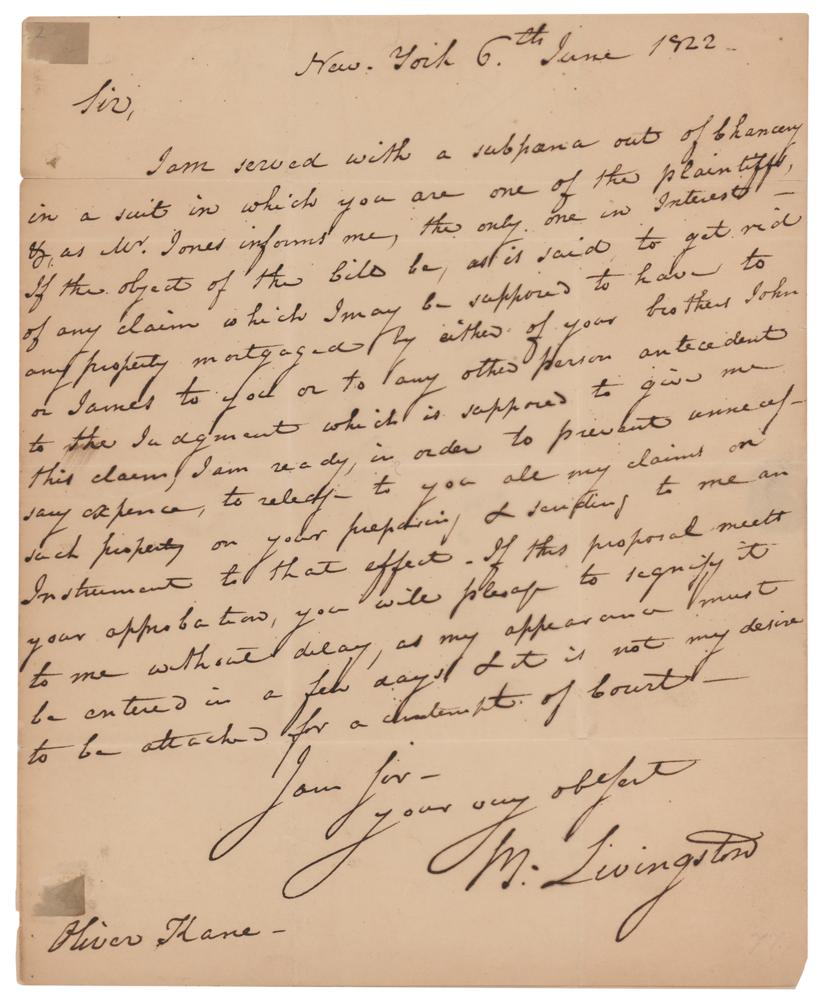 New-York 6.th June 1822-
Sir,
I am served with a subpœna out of Chancery
in a suit in which you are one of the plaintiffs,
&, as Mr. Jones informs me, the only one in Interest —
If the object of the bill be, as is said, to get rid
of any claim which I may be supposed to have to
any property mortgaged by either of your brothers John
or James to you or to any other person antecedent
to the Judgment which is supposed to give me
this claim, I am ready, in order to prevent unneces-
sary expence, to release to you all my claims on
such property on your preparing & sending to me an
Instrument to that effect - If this proposal meets
your approbation, you will please to signify it
to me without delay, as my appearance must
be entered in a few days & it is not my desire
to be attached for a contempt of Court —
I am Sir-
your very obt Sert
M. Livingston
Oliver Kane -